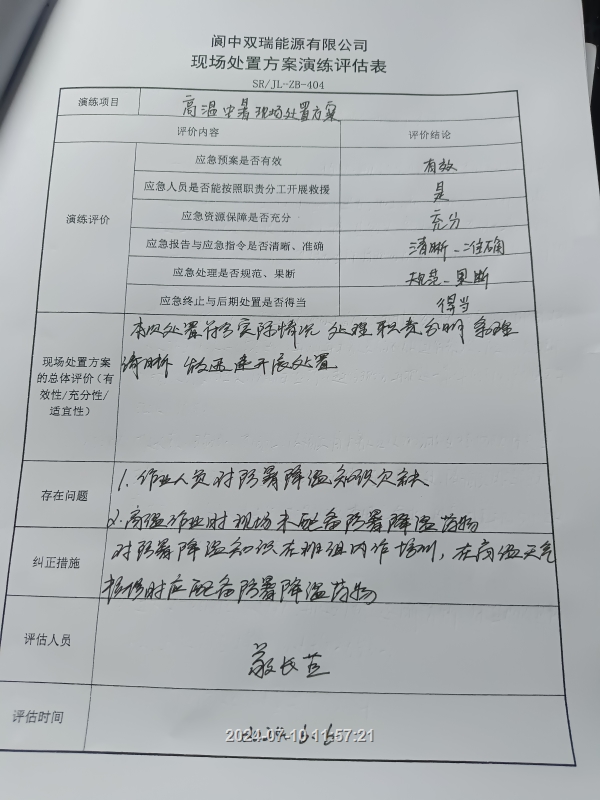 阆中双瑞能源有限公司
现场处置方案演练评估表
SR/JL-ZB-404
演练项目 高温中暑现场处置方案
评价内容 评价结论
演练评价
应急预案是否有效 有效
应急人员是否能按照职责分工开展救援 是
应急资源保障是否充分 充分
应急报告与应急指令是否清晰、准确 清晰、准确
应急处理是否规范、果断 规范、果断
应急终止与后期处置是否得当 得当
现场处置方案的总体评价(有效性/充分性/适宜性)
本次处置符合实际情况 处理职责分明 条理
清晰 能迅速开展处置
存在问题
1. 作业人员对防暑降温知识欠缺
2. 高温作业时现场未配备防暑降温药物
纠正措施
对防暑降温知识在班组内作培训,在高温天气
时应配备防暑降温药物
评估人员
评估时间
2024-07-10 11:57:21